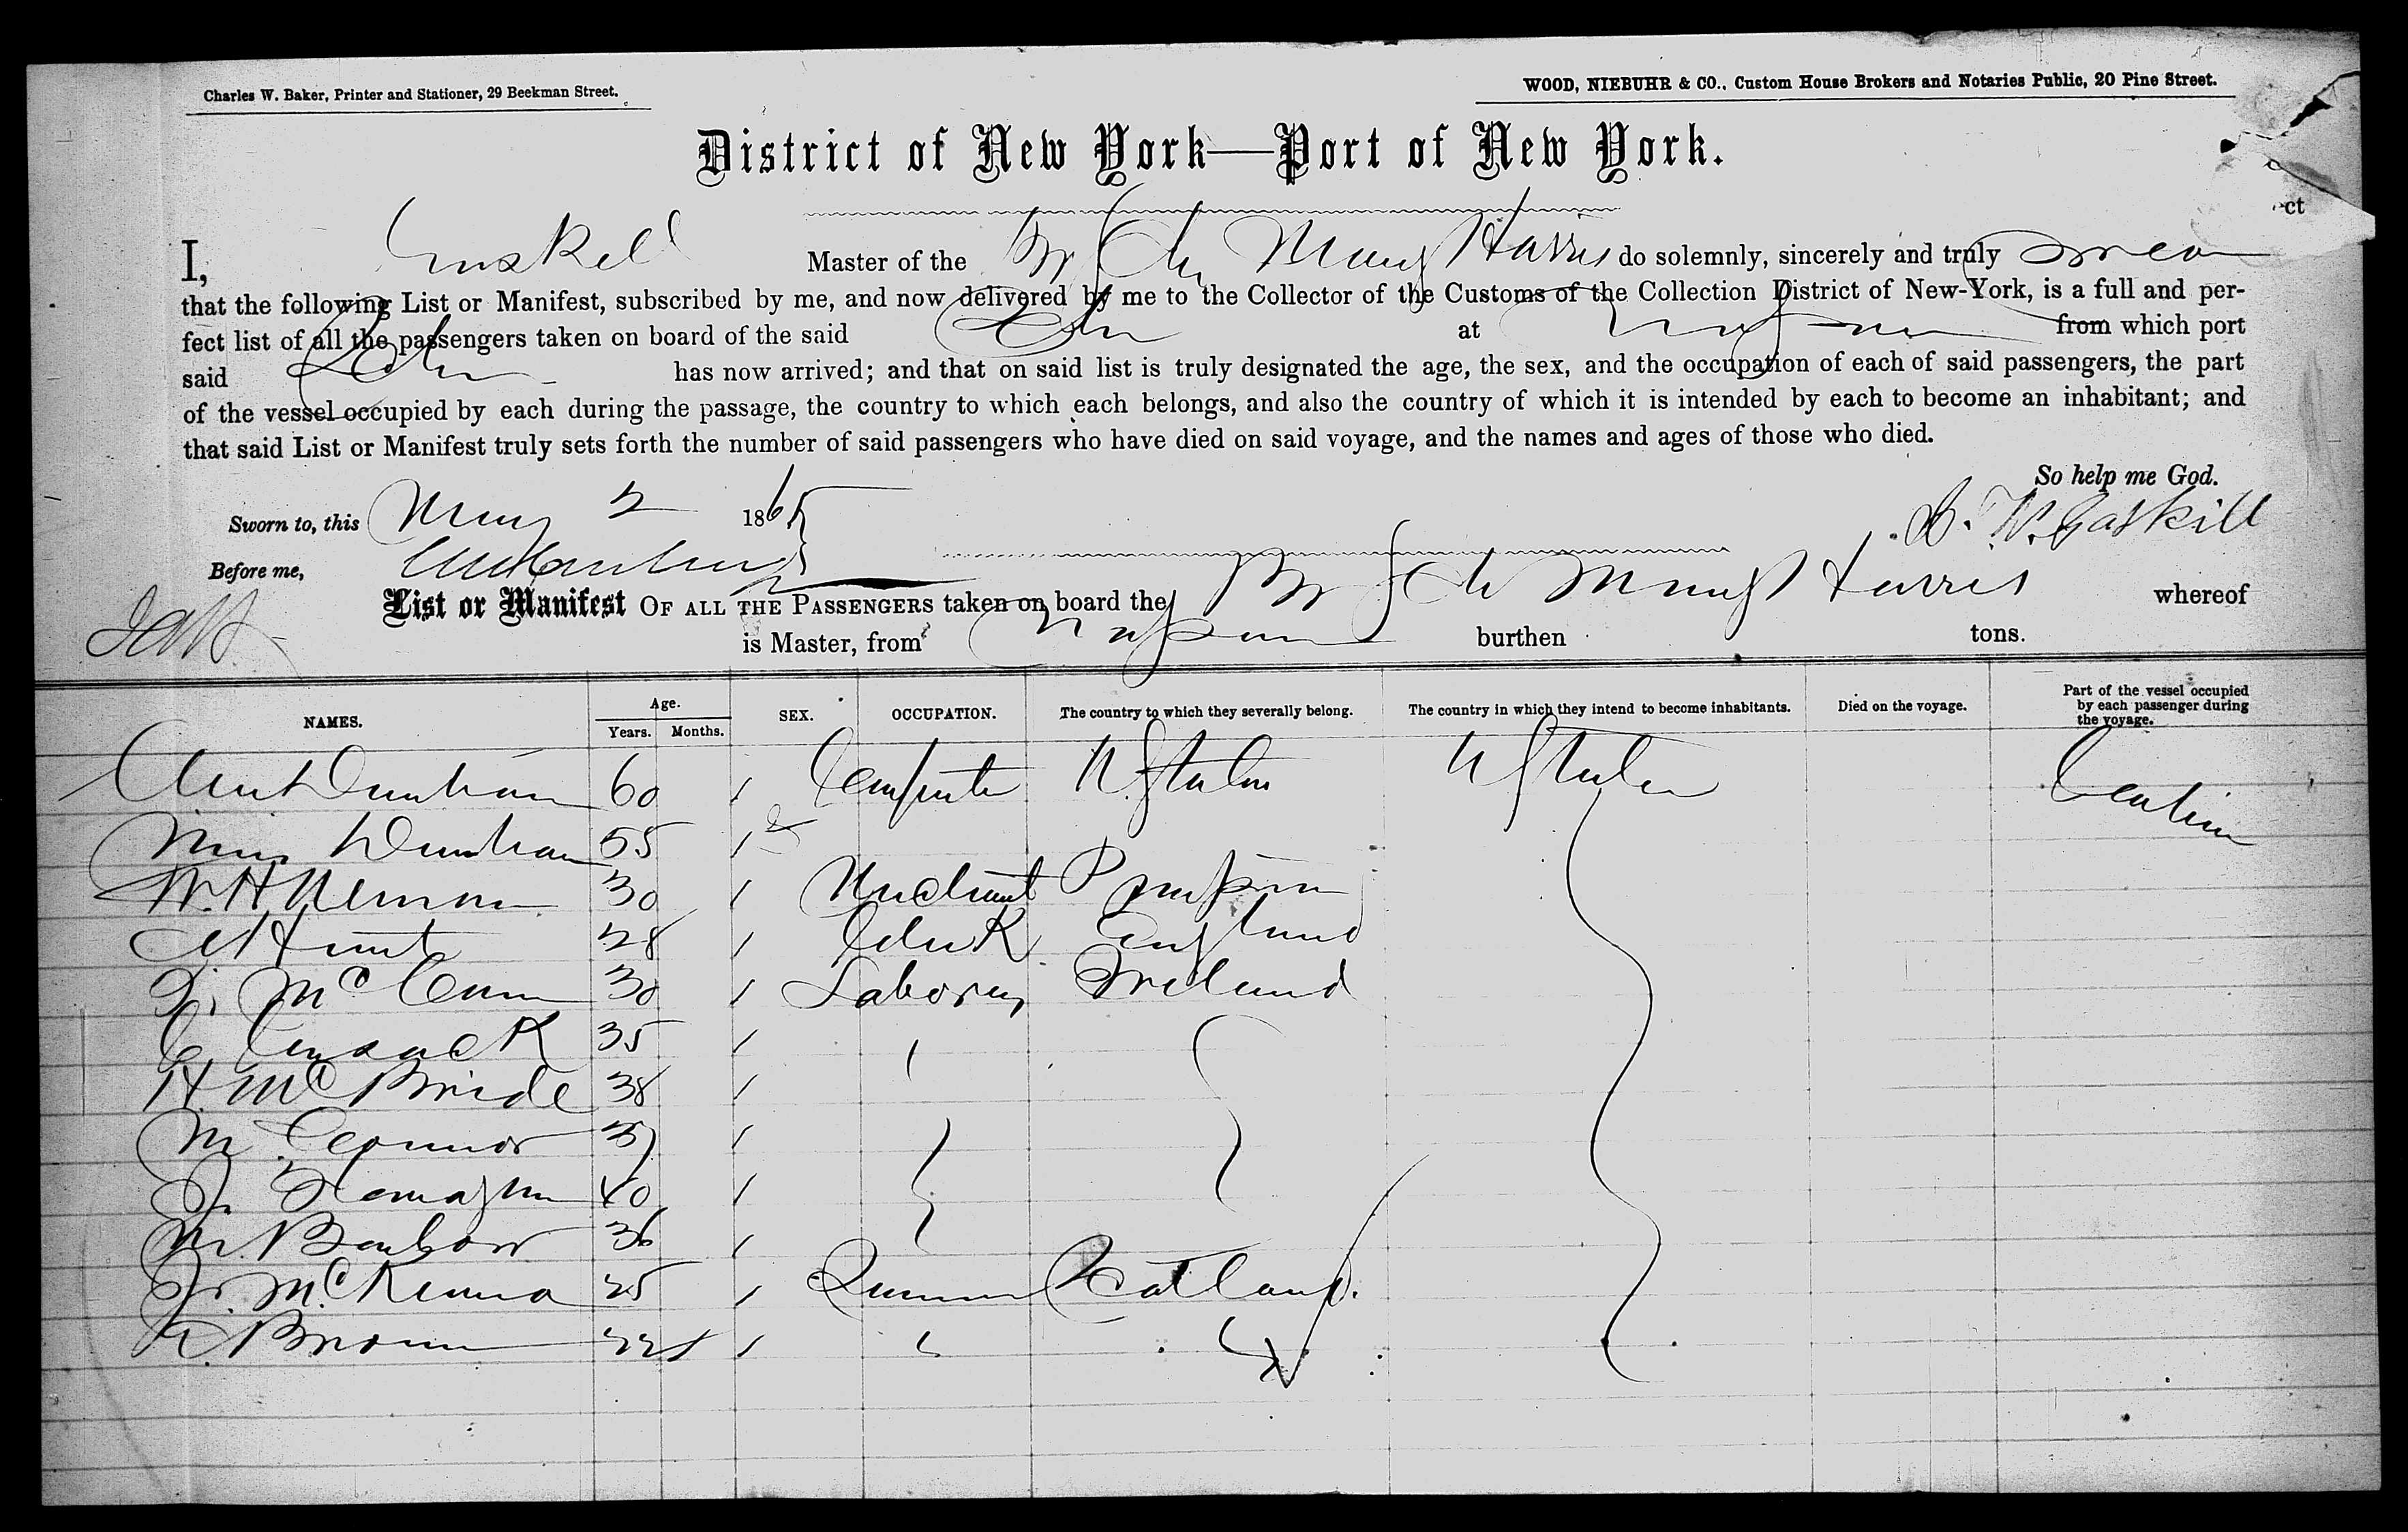 Charles W. Baker, Printer and Stationer, 29 Beekman Street.
WOOD, NIEBUHR & CO., Custom House Brokers and Notaries Public, 20 Pine Street.
District of New York—Port of New York.
ect
I, Gaskell Master of the Br Schr Mary Harris do solemnly, sincerely and truly swear
that the following List or Manifest, subscribed by me, and now delivered by me to the Collector of the Customs of the Collection District of New-York, is a full and per-
fect list of all the passengers taken on board of the said Schr at from which port
said Schr has now arrived; and that on said list is truly designated the age, the sex, and the occupation of each of said passengers, the part
of the vessel occupied by each during the passage, the country to which each belongs, and also the country of which it is intended by each to become an inhabitant; and
that said List or Manifest truly sets forth the number of said passengers who have died on said voyage, and the names and ages of those who died.
So help me God.
Sworn to, this May 2 1865 W. Gaskill
Before me,
List or Manifest OF ALL THE PASSENGERS taken on board the Br Schr Mary Harris whereof
is Master, from burthen tons.
NAMES. Age. Years. Months. SEX. OCCUPATION. The country to which they severally belong. The country in which they intend to become inhabitants. Died on the voyage. Part of the vessel occupied by each passenger during the voyage.
Dunham 60 Carpenter U States U States Cabin
Dunham 55
W. H. 30 Merchant
Hunt 28 Clerk England
McCann 30 Laborer Ireland
C. Cusack 35
H. McBride 38
M. Connor 37
J. Flanaghan 40
M. Benbow 36
Jr. McKenna 25 Scotland.
Brown 22